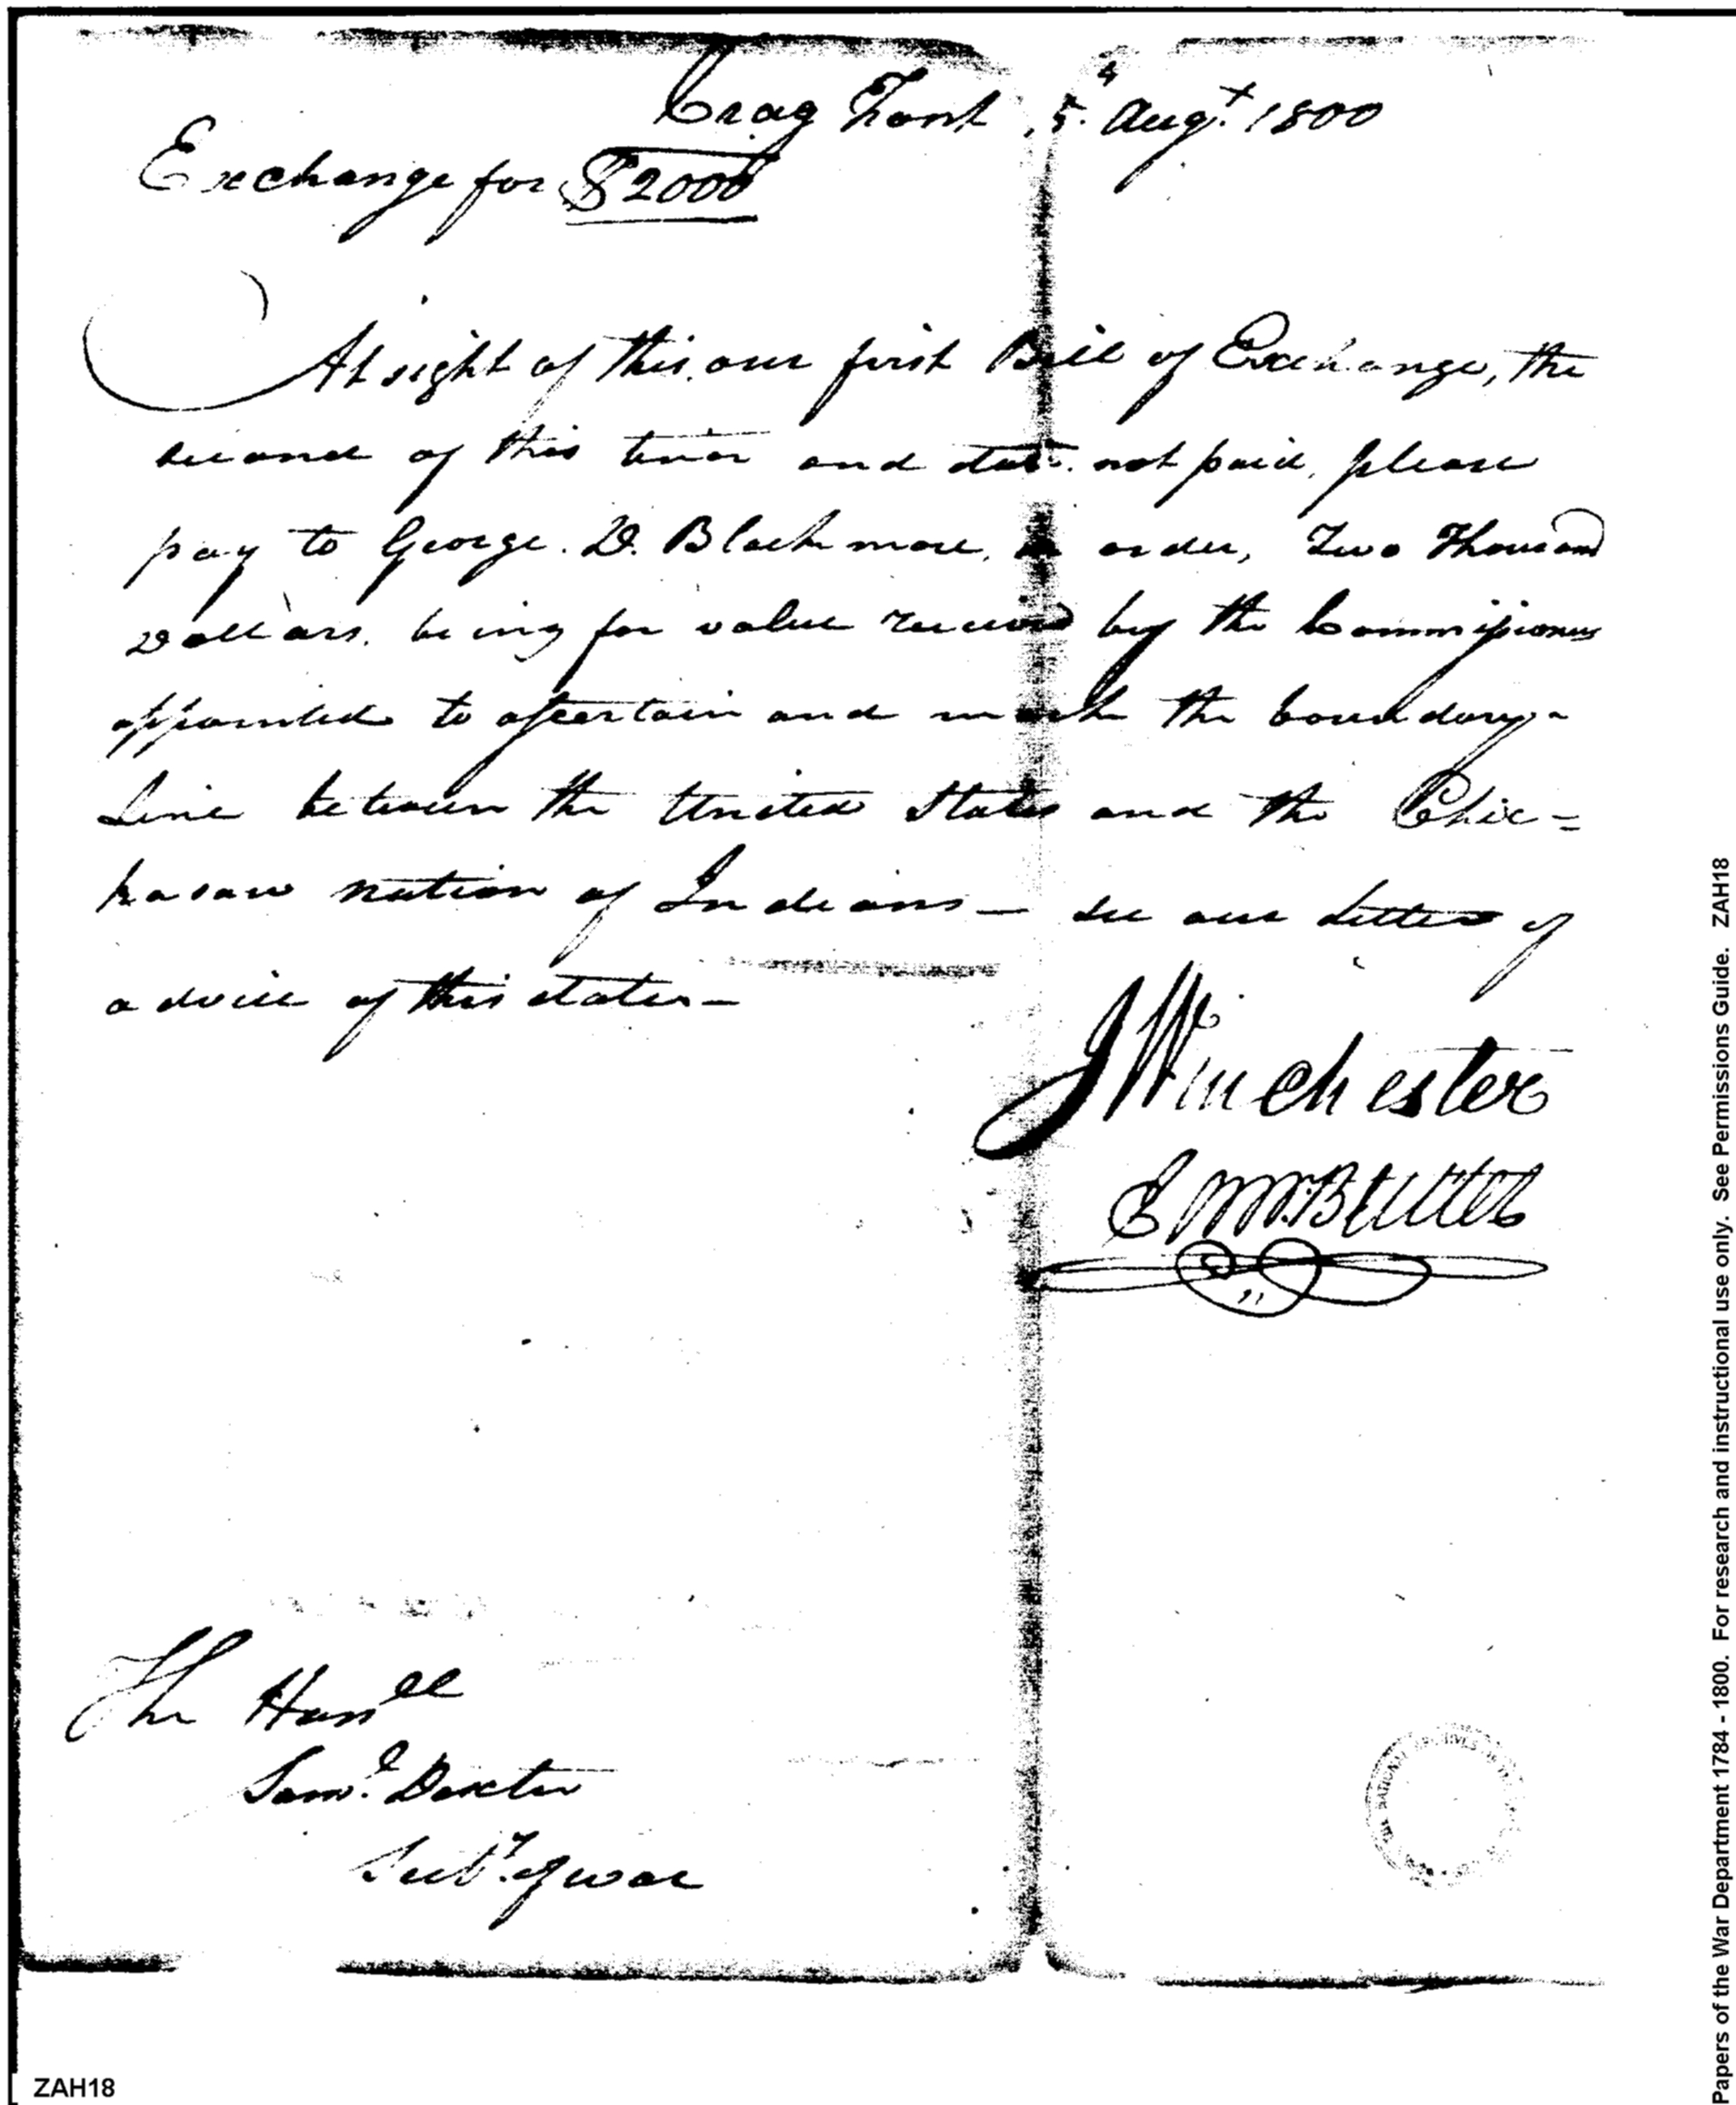 Crag Font 5th Augt. 1800
Exchange for $2000
At sight of this our first Bill of Exchange, the
second of this tenor and date not paid, please
pay to George. D. Blackmore, or order, Two Thousand
Dollars. being for value received by the Commissioners
appointed to ascertain and mark the boundary-
Line between the United States and the Chic=
kasaw nation of Indians — see our letter of
advice of this date. —
J Winchester
E W. Butler
The Honll
Saml. Dexter
Secty. of war
THE NATIONAL ARCHIVES OF THE
ZAH18
Papers of the War Department 1784 - 1800. For research and instructional use only. See Permissions Guide. ZAH18